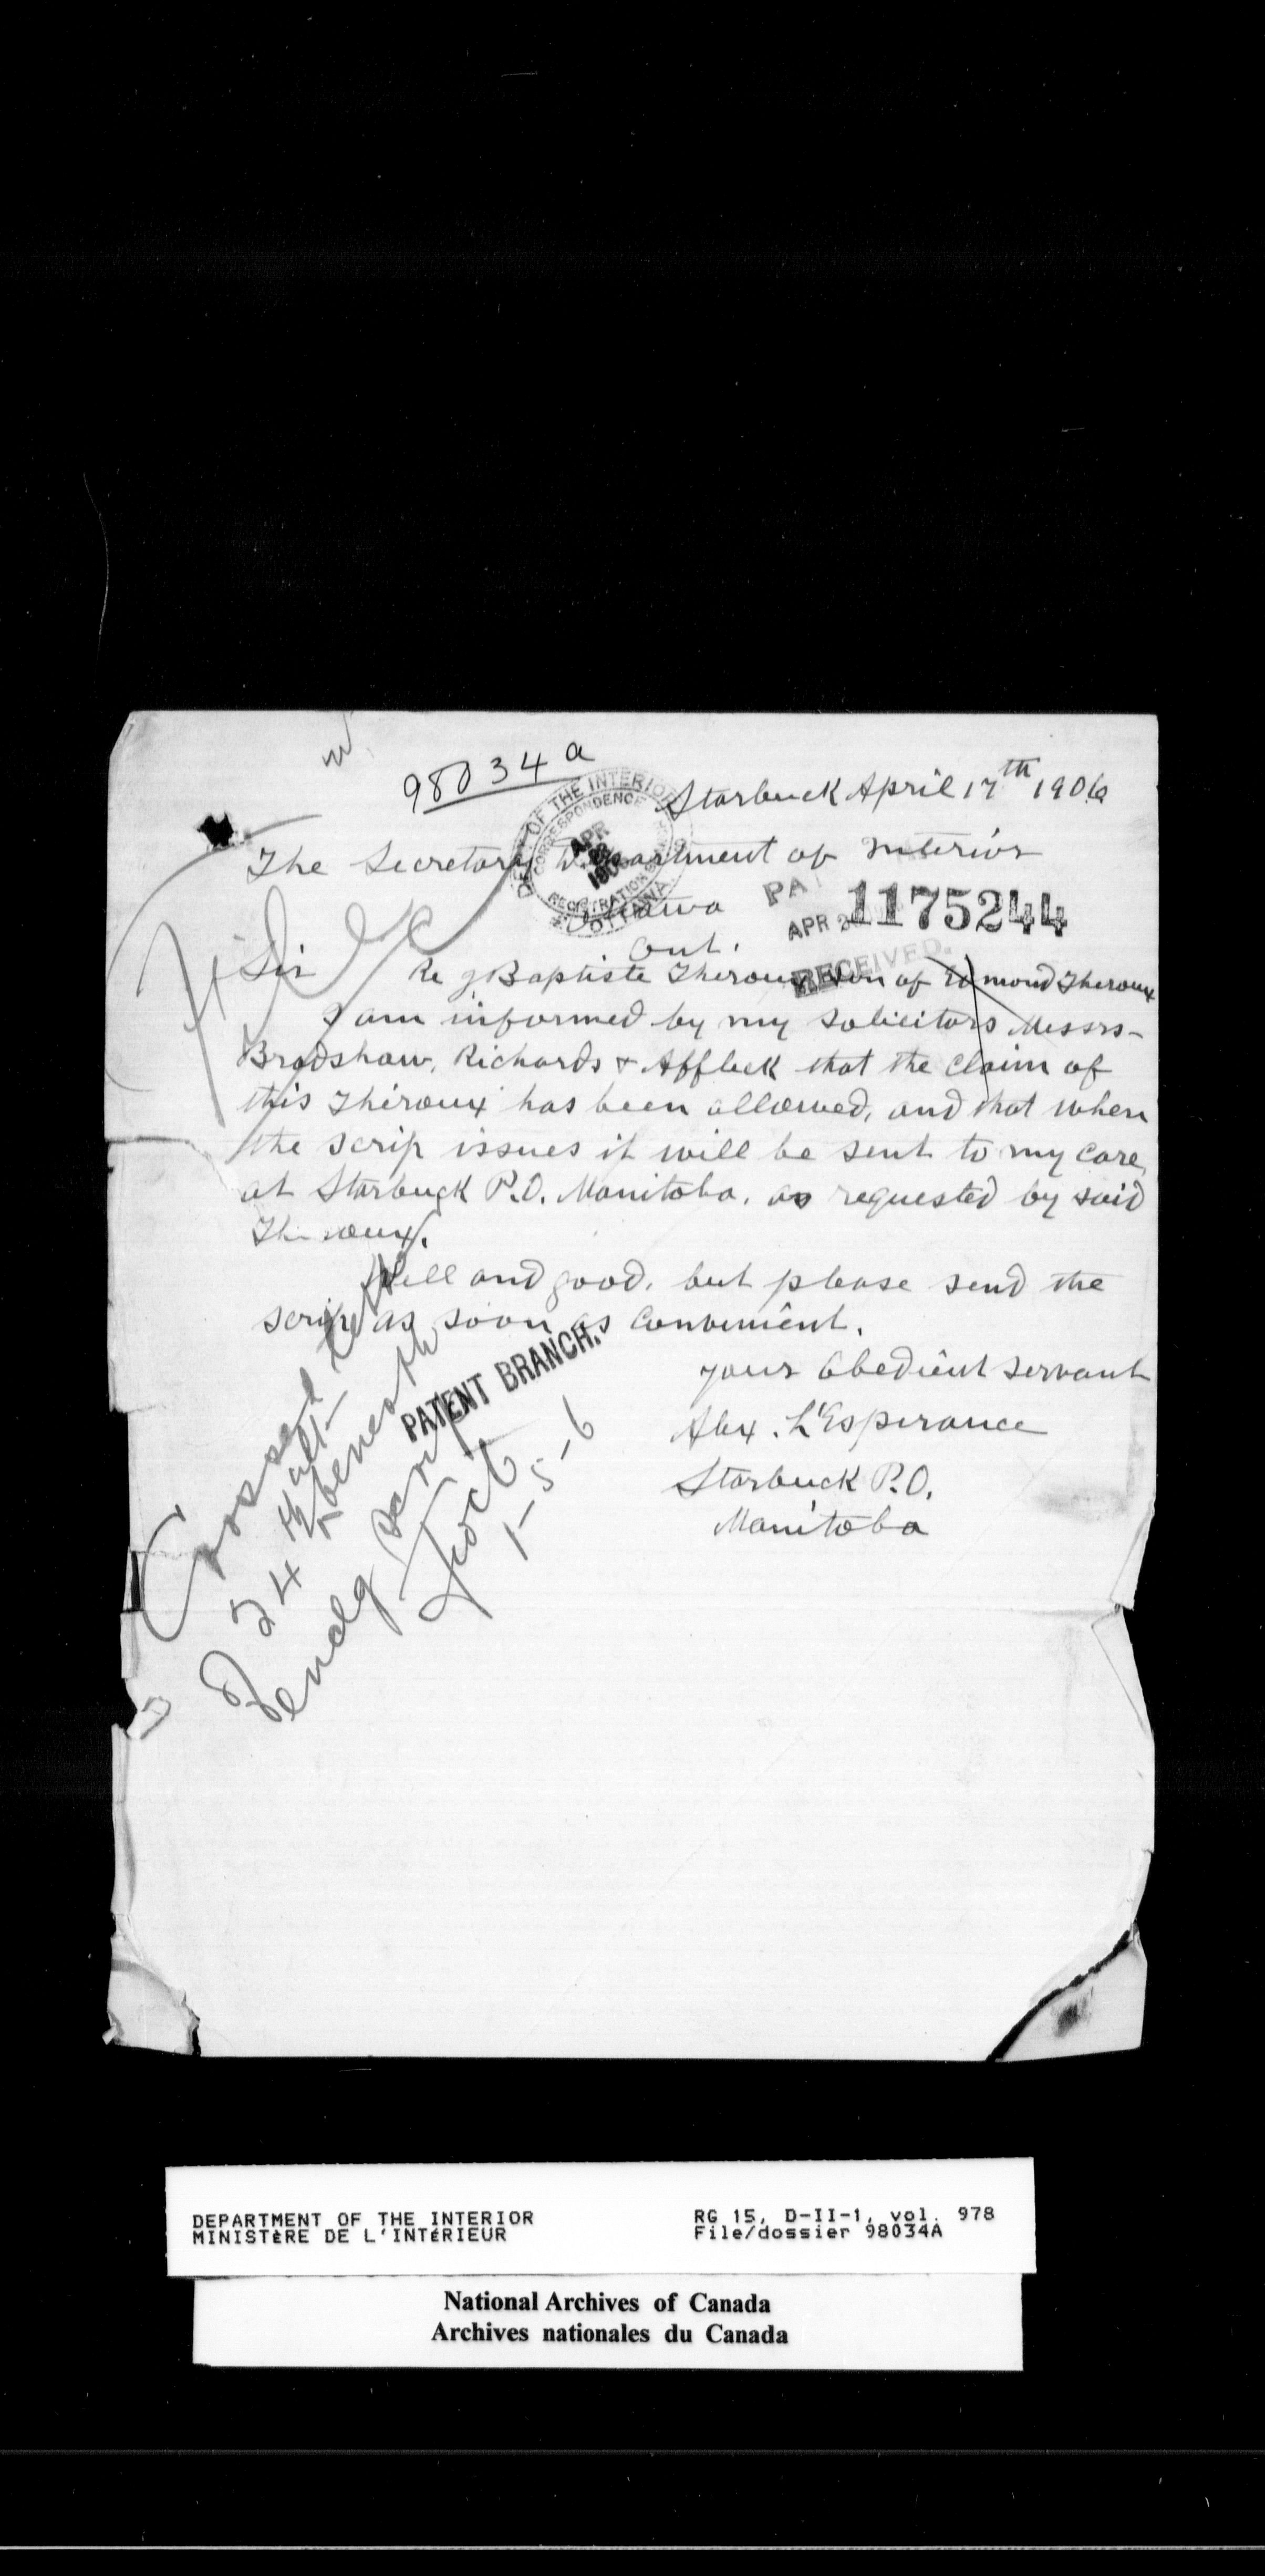 98034a
Starbuck April 17th 1906
The Secretary Department of Interior
Ottawa
Ont.
DEPT OF THE INTERIOR
CORRESPONDENCE
APR
1906
REGISTRATION
OTTAWA
PA
APR 2
1175244
RECEIVED.
Sir
Re J Baptiste Theroux son of Theroux
I am informed by my solicitors Messrs-
Bradshaw, Richards & Affleck that the claim of
this Theroux has been allowed, and that when
the scrip issues it will be sent to my care,
at Starbuck P.O. Manitoba, as requested by said
Theroux.
Well and good, but please send the
scrip as soon as convenient.
your obedient servant
Alex. L'Esperance
Starbuck P.O.
Manitoba
PATENT BRANCH.
Crossed letter
24th ult
beneath
Pendg scrip
1-5-6
DEPARTMENT OF THE INTERIOR
MINISTÈRE DE L'INTÉRIEUR
RG 15, D-II-1, vol. 978
File/dossier 98034A
National Archives of Canada
Archives nationales du Canada